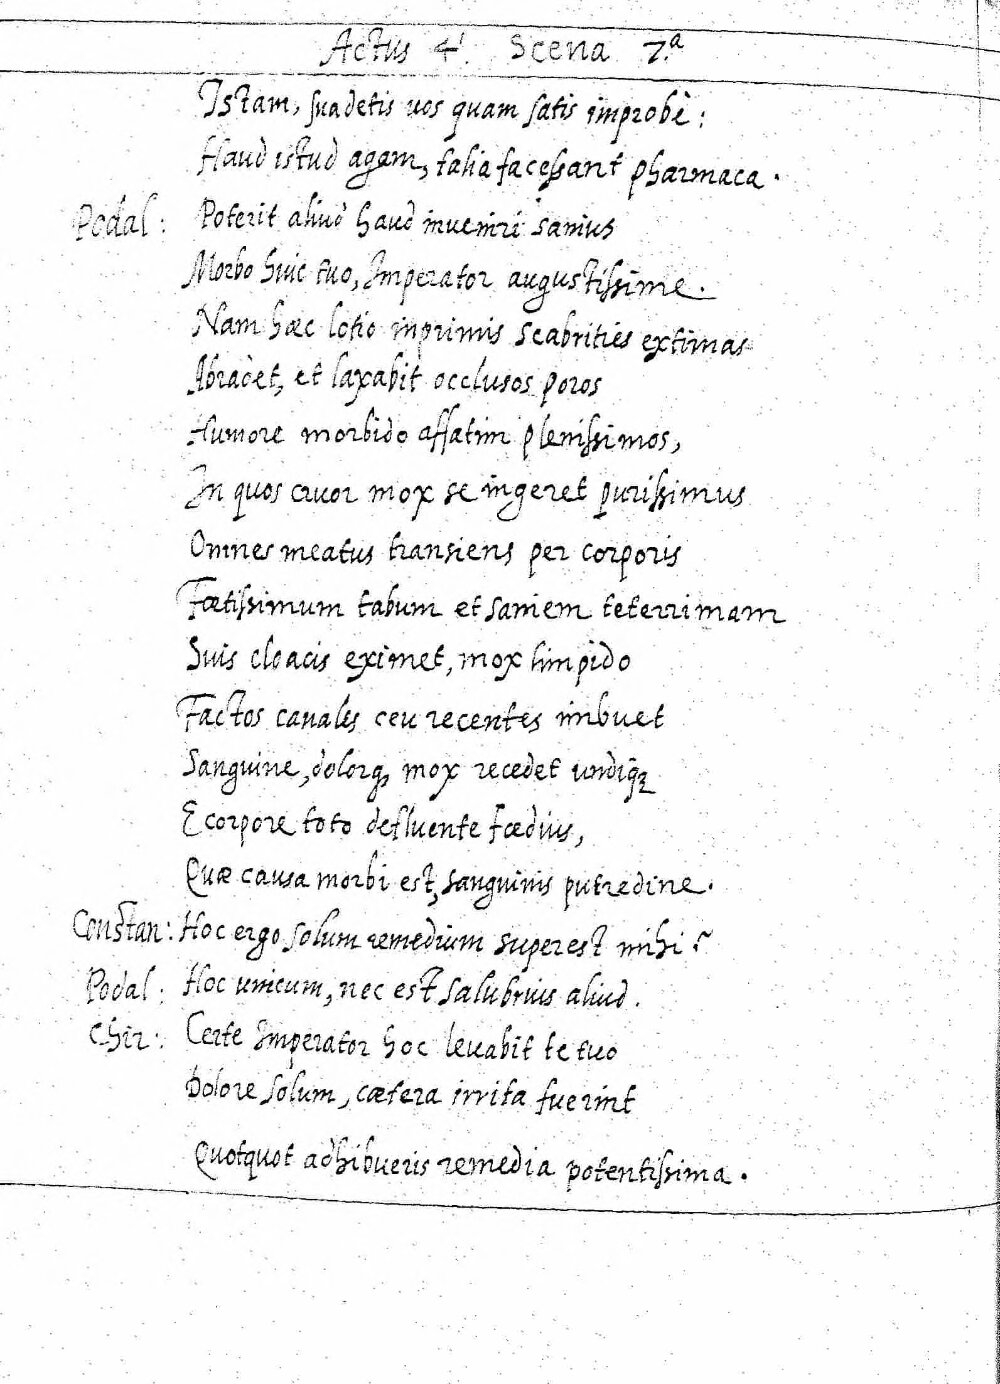 Actus 4ᵗ. Scena 7.ª
Istam, suadetis uos quam satis improbè:
Haud istud agam, talia facessant pharmaca.
Podal: Poterit aliud haud inueniri sanius
Morbo huic tuo, Imperator augustissime.
Nam hæc lotio inprimis scabrities extimas
Abradet, et laxabit occlusos poros
Humore morbido affatim plenissimos,
In quos cruor mox se ingeret purissimus
Omnes meatus transiens per corporis
Fœtissimum tabum et saniem teterrimam
Suis cloacis eximet, mox limpido
Factos canales ceu recentes imbuet
Sanguine, dolorq, mox recedet undiq
E corpore toto defluente fœdius,
Quæ causa morbi est, sanguinis putredine.
Constan: Hoc ergo solum remedium superest mihi?
Podal: Hoc unicum, nec est salubrius aliud.
Chir: Certe Imperator hoc leuabit te tuo
Dolore solum, cætera irrita fuerint
Quotquot adhibueris remedia potentissima.